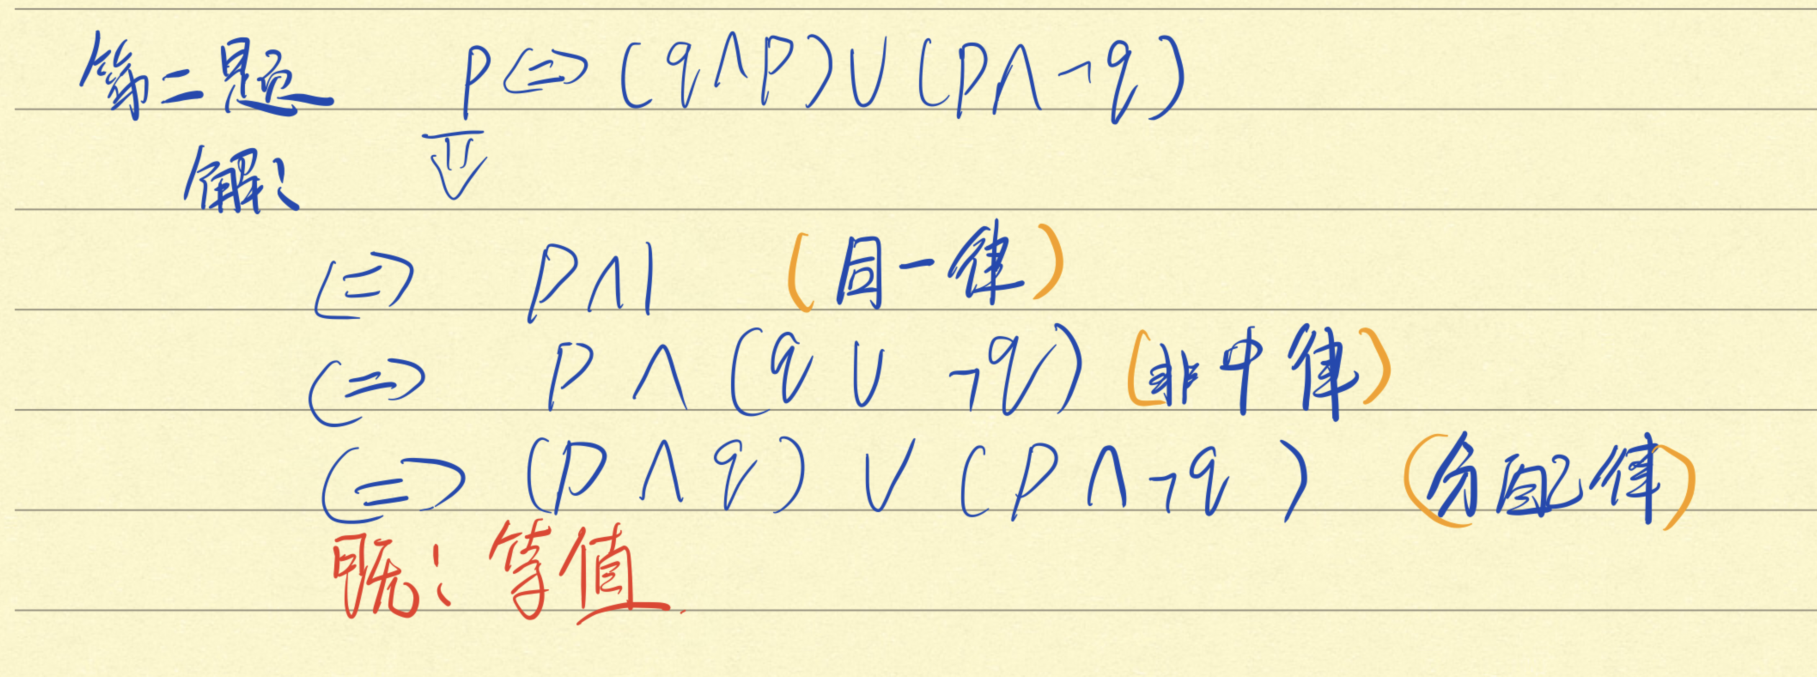 第二题 p⇔(q∧p)∨(p∧¬q)
解: ⇓
⇔ p∧1 (同一律)
⇔ p∧(q∨¬q) (非中律)
⇔ (p∧q)∨(p∧¬q) (分配律)
既: 等值.